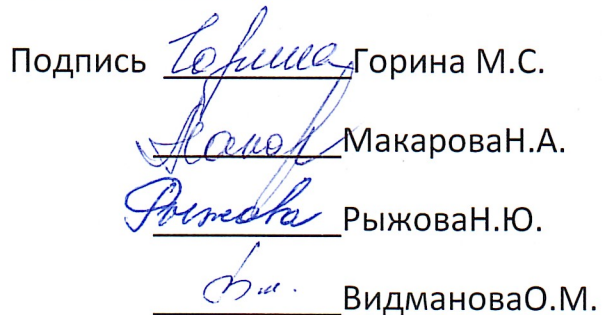 Подпись Горина Горина М.С.
Макар МакароваН.А.
Рыжова РыжоваН.Ю.
ВидмановаО.М.